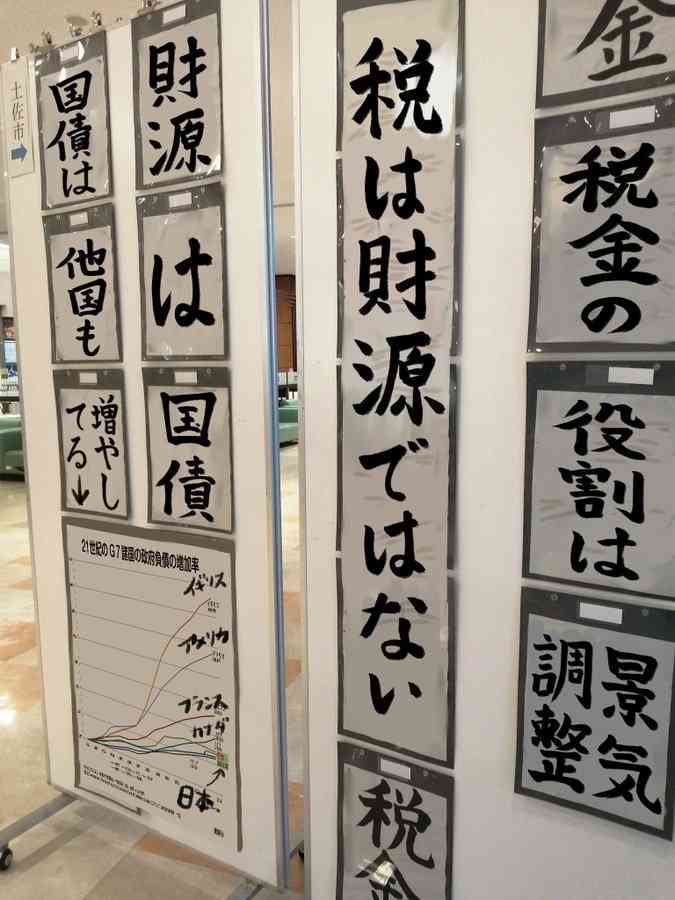 金
税金の
役割は
景気
調整
税は財源ではない
税金
財源
は
国債
国債は
他国も
増やし
てる↓
土佐市
→
21世紀のG7諸国の政府負債の増加率
イギリス
アメリカ
フランス
カナダ
日本